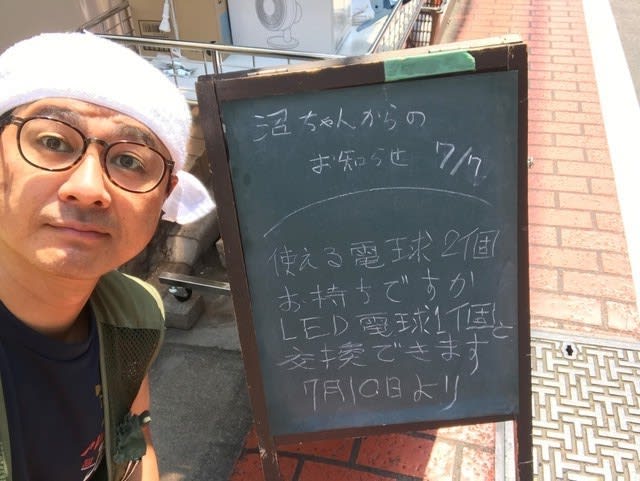 沼ちゃんからの
お知らせ 7/7
使える電球2個
お持ちですか
LED電球1個と
交換できます
7月10日より